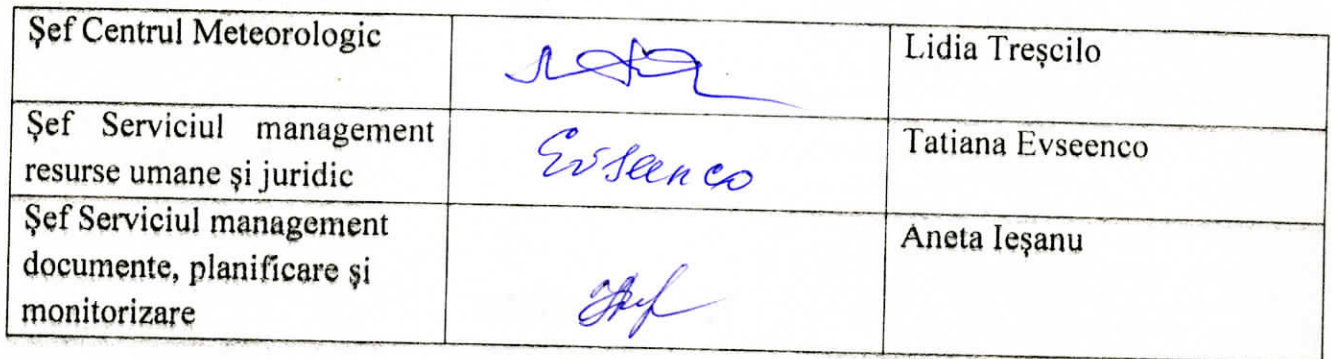 Șef Centrul Meteorologic
Lidia Treșcilo
Șef Serviciul management
resurse umane și juridic
Evseenco
Tatiana Evseenco
Șef Serviciul management
documente, planificare și
monitorizare
Aneta Ieșanu